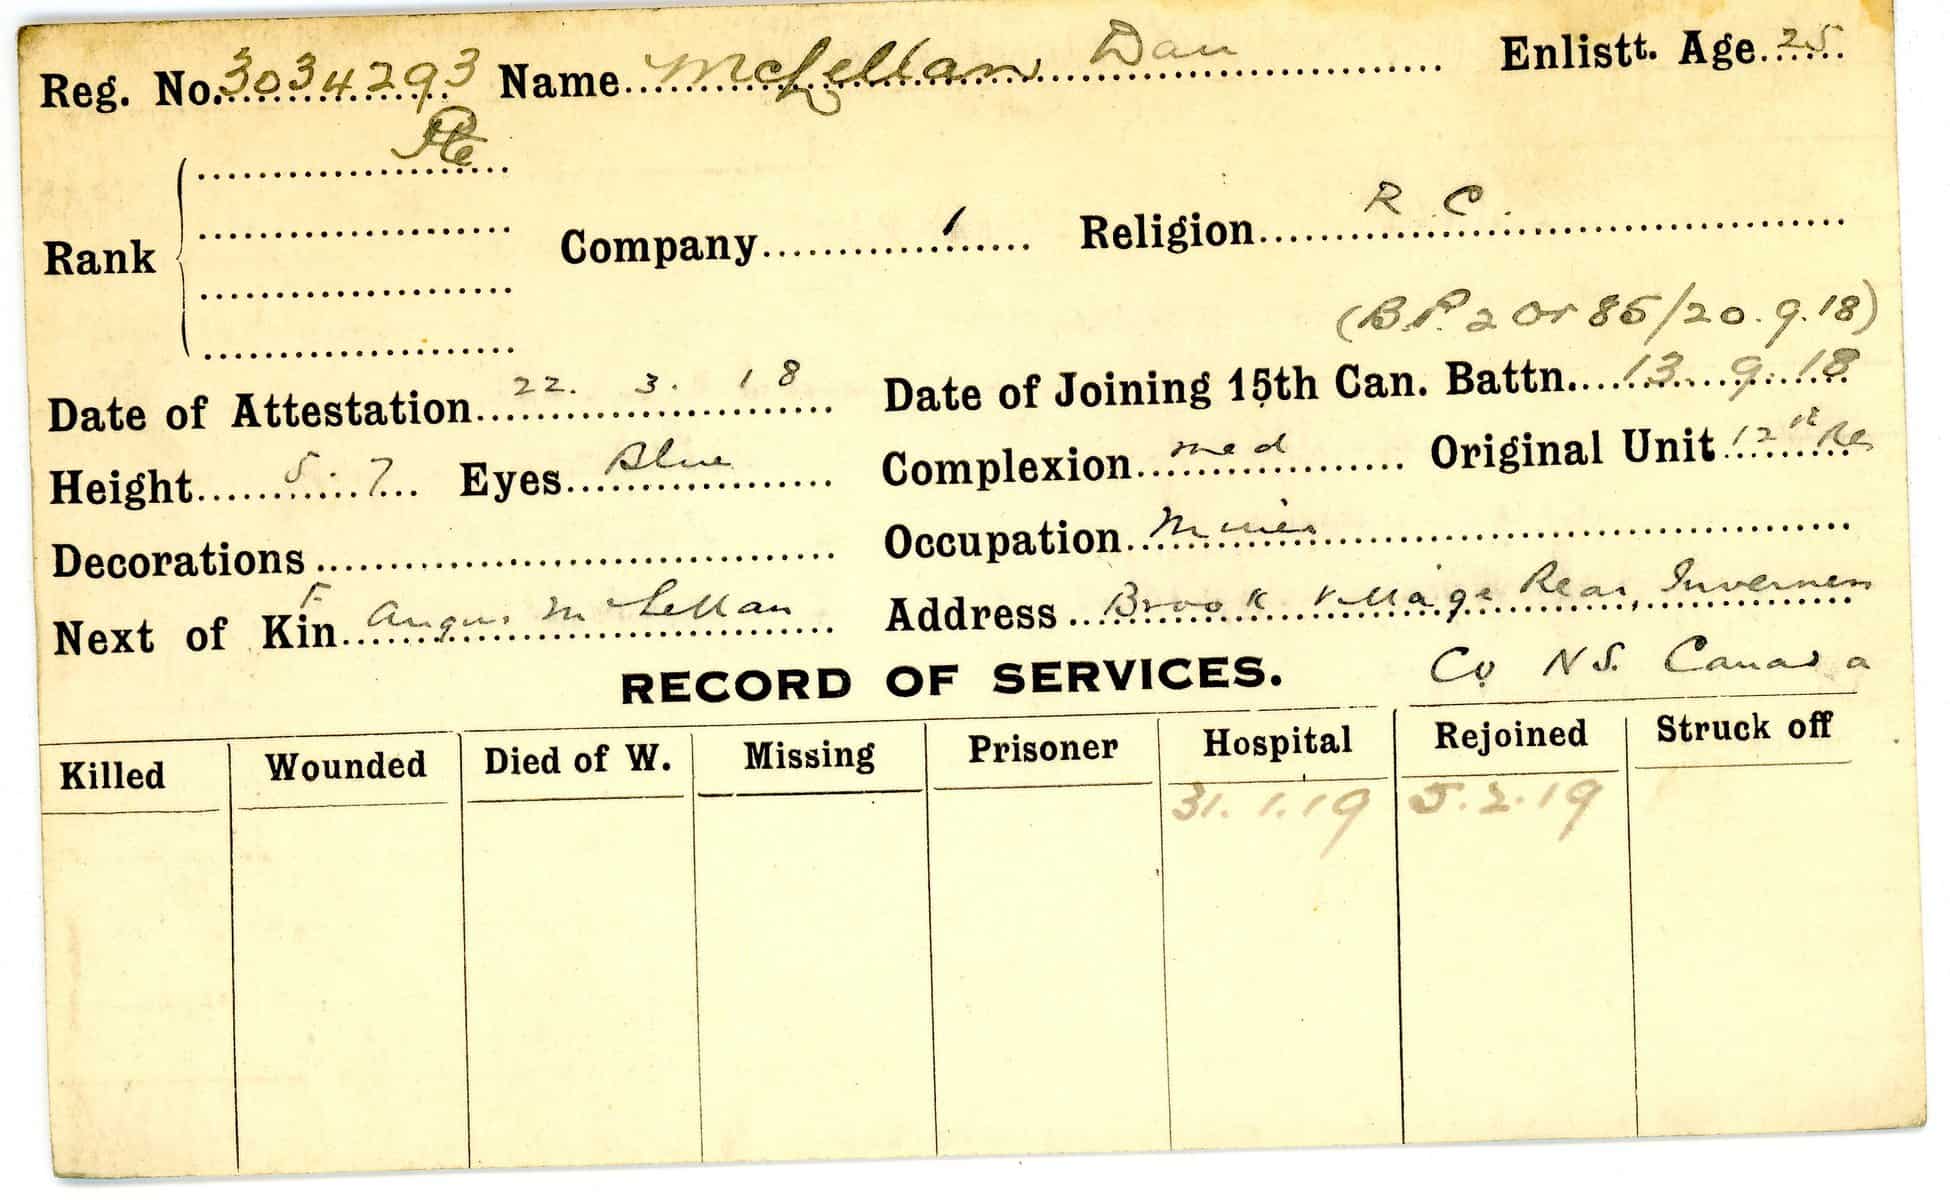 Reg. No. 3034293 Name McLellan Dan Enlistt. Age 25
Pte
Rank Company 1 Religion R C.
(B.P. 2 Or 85/20.9.18)
Date of Attestation 22. 3. 18 Date of Joining 15th Can. Battn. 13.9.18
Height 5.7 Eyes Blue Complexion med Original Unit 12th Res
Decorations Occupation Miner
Next of Kin F Angus McLellan Address Brook Village Rear, Inverness
RECORD OF SERVICES. Co NS. Canada
Killed Wounded Died of W. Missing Prisoner Hospital Rejoined Struck off
31.1.19 5.2.19